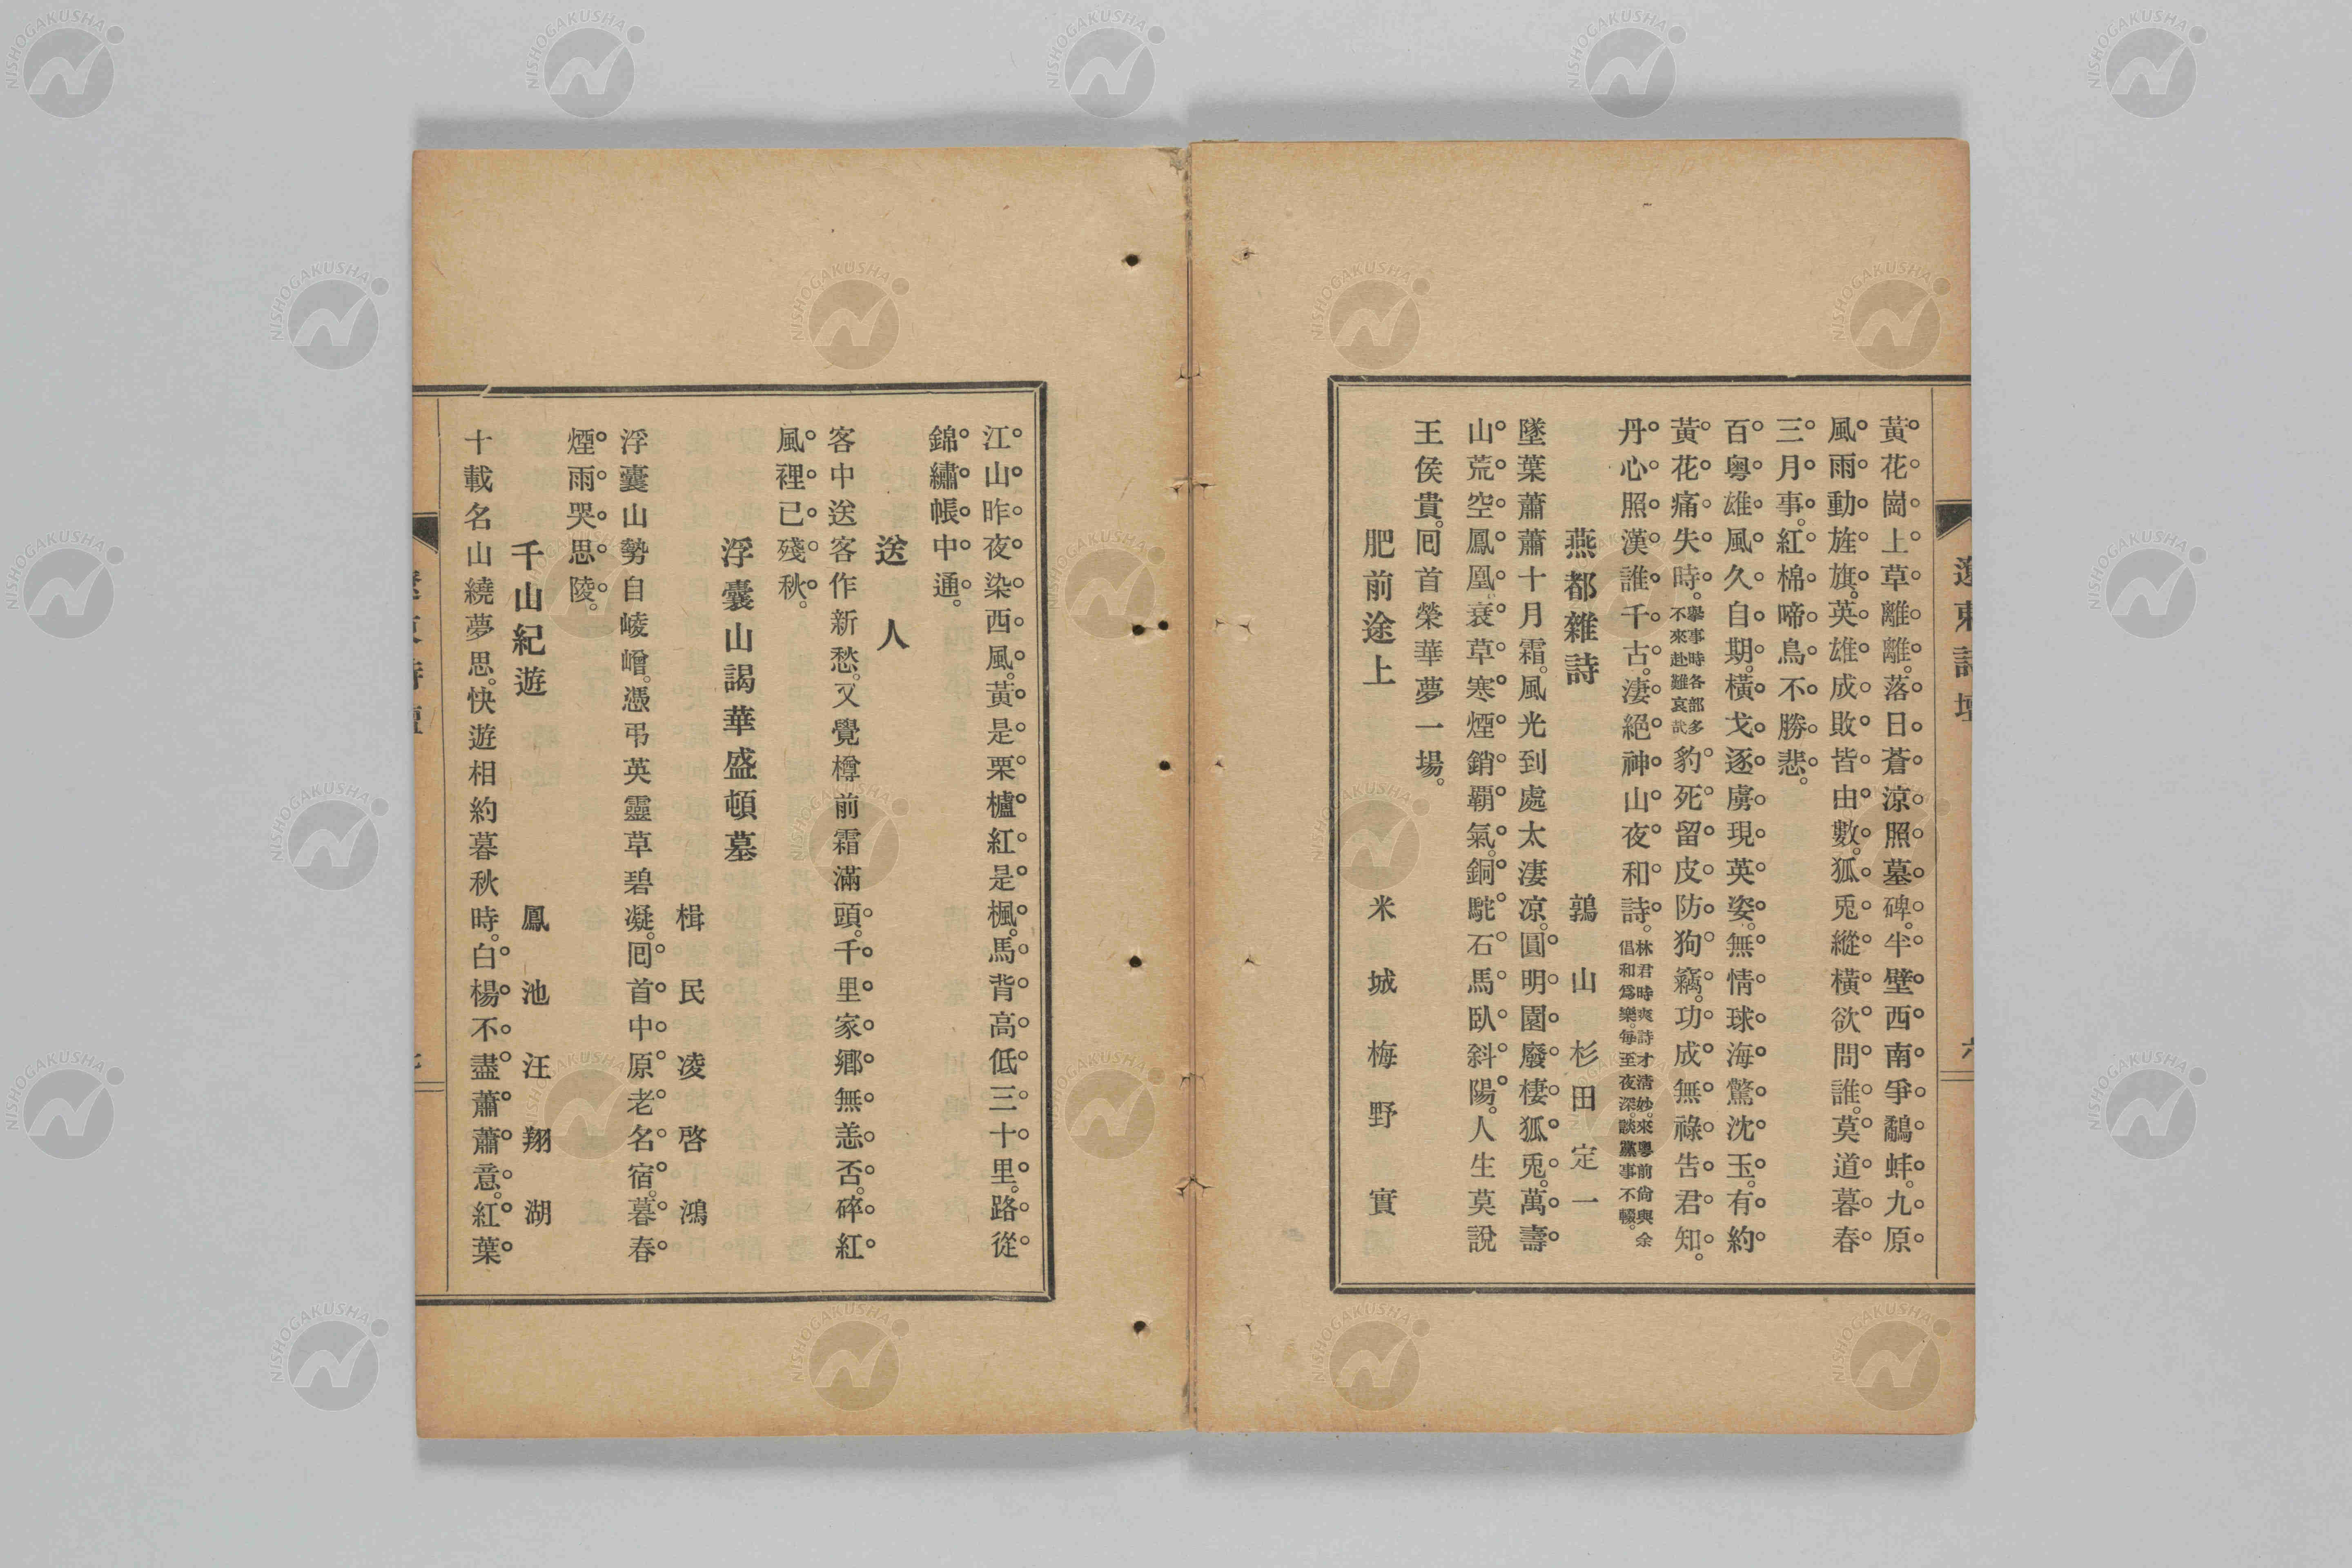 黃花崗上草離離。落日蒼涼照墓碑。半壁西南爭鷸蚌。九原
風雨動旌旗。英雄成敗皆由數。狐兎縱橫欲問誰。莫道暮春
三月事。紅棉啼鳥不勝悲。
百粤雄風久自期。橫戈逐虜現英姿。無情球海驚沈玉。有約
黃花痛失時。擧事時各部多不來赴難哀哉豹死留皮防狗竊。功成無祿告君知。
丹心照漢誰千古。淒絕神山夜和詩。林君時爽詩才清妙。來粤前尙與余倡和爲樂。每至夜深。談黨事不輟。
燕都雜詩　鶉山杉田定一
墜葉蕭蕭十月霜。風光到處太淒凉。圓明園廢棲狐兎。萬壽
山荒空鳳凰。衰草寒煙銷覇氣。銅駝石馬臥斜陽。人生莫說
王侯貴。回首榮華夢一場。
肥前途上　米城梅野實
江山昨夜染西風。黃是栗櫨紅是楓。馬背高低三十里。路從
錦繡帳中通。
送人
客中送客作新愁。又覺樽前霜滿頭。千里家鄕無恙否。碎紅
風裡已殘秋。
浮囊山謁華盛頓墓　楫民凌啓鴻
浮囊山勢自崚嶒。憑弔英靈草碧凝。回首中原老名宿。暮春
煙雨哭思陵。
千山紀遊　鳳池汪翔湖
十載名山繞夢思。快遊相約暮秋時。白楊不盡蕭蕭意。紅葉